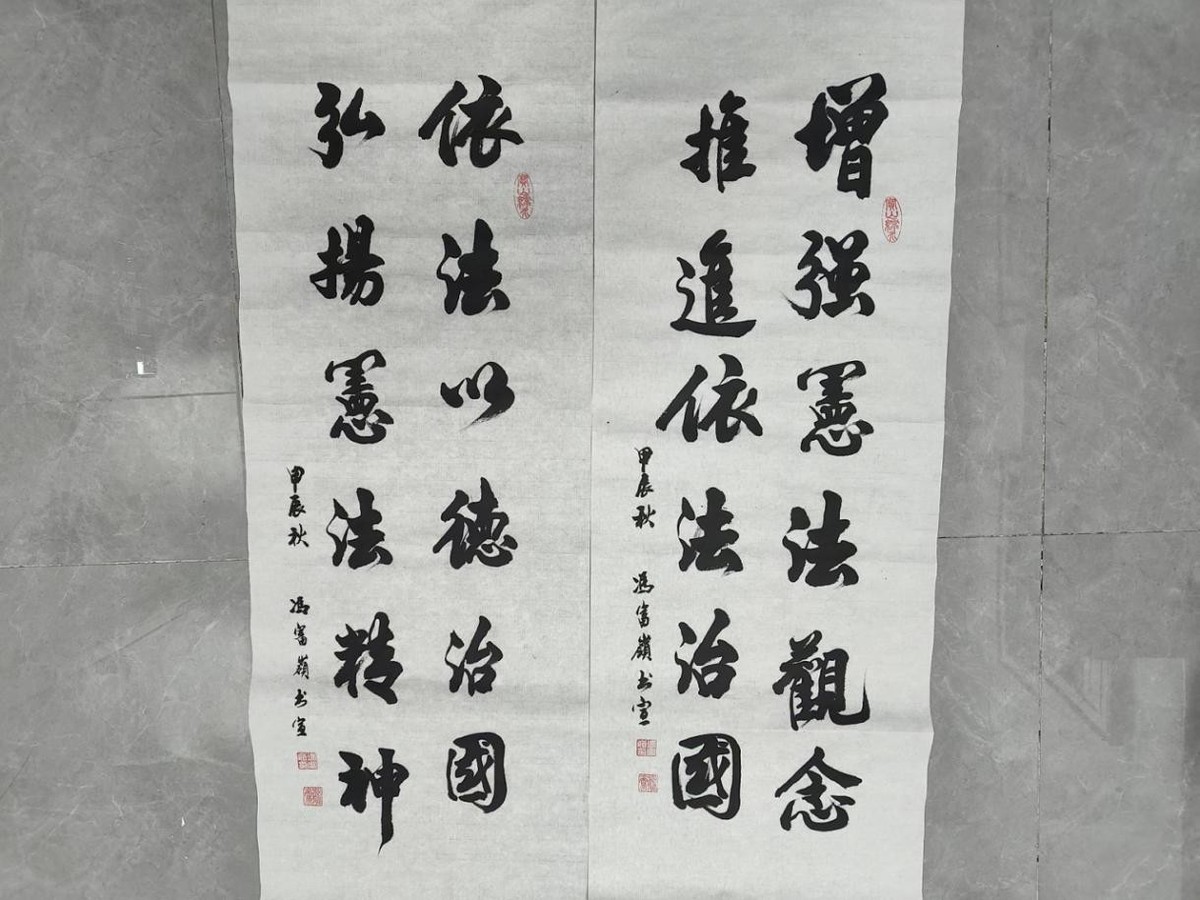 增强憲法觀念
推進依法治國
甲辰秋 馮富嶺书宣
依法以德治國
弘揚憲法精神
甲辰秋 馮富嶺书宣